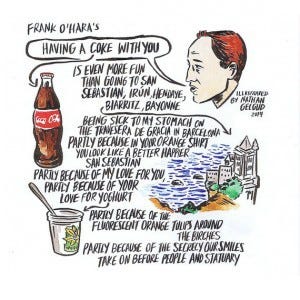 FRANK O'HARA'S
HAVING A COKE WITH YOU
IS EVEN MORE FUN
THAN GOING TO SAN
SEBASTIAN, IRÚN, HENDAYE,
BIARRITZ, BAYONNE
ILLUSTRATED
BY NATHAN
GELGUD
2014
Coca-Cola
BEING SICK TO MY STOMACH ON
THE TRAVESERA DE GRACIA IN BARCELONA
PARTLY BECAUSE IN YOUR ORANGE SHIRT
YOU LOOK LIKE A BETTER HAPPIER
SAN SEBASTIAN
PARTLY BECAUSE OF MY LOVE FOR YOU,
PARTLY BECAUSE OF YOUR
LOVE FOR YOGHURT
PARTLY BECAUSE OF THE
FLUORESCENT ORANGE TULIPS AROUND
THE BIRCHES
PARTLY BECAUSE OF THE SECRECY OUR SMILES
TAKE ON BEFORE PEOPLE AND STATUARY